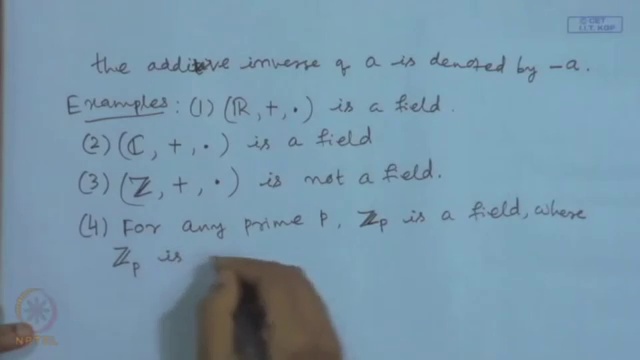 © CET
I.I.T. KGP
the additive inverse of a is denoted by -a.
Examples: (1) (ℝ, +, ·) is a field.
(2) (ℂ, +, ·) is a field
(3) (ℤ, +, ·) is not a field.
(4) For any prime p, ℤp is a field, where
ℤp is
NPTEL